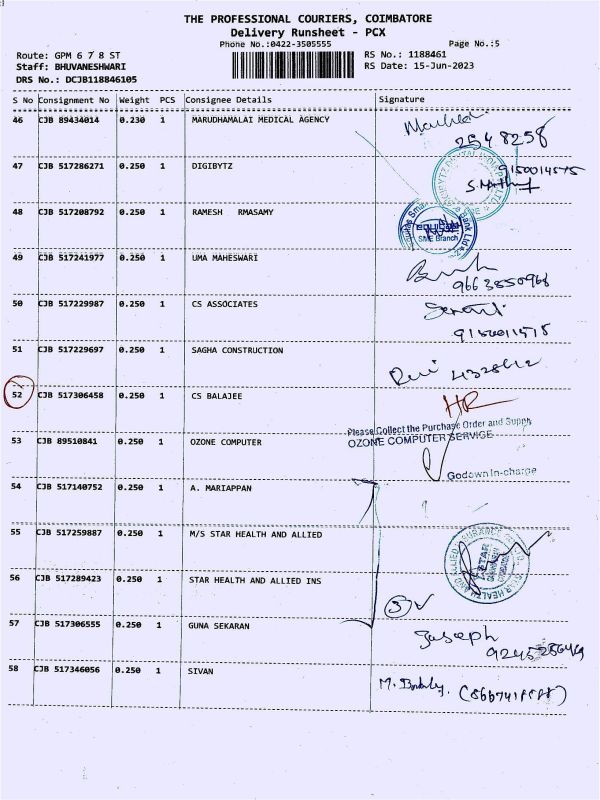 THE PROFESSIONAL COURIERS, COIMBATORE
Delivery Runsheet - PCX
Phone No.:0422-3505555
Page No.:5
Route: GPM 6 7 8 ST
RS No.: 1188461
Staff: BHUVANESHWARI
RS Date: 15-Jun-2023
DRS No.: DCJB118846105
S No Consignment No Weight PCS Consignee Details Signature
46 CJB 89434014 0.230 1 MARUDHAMALAI MEDICAL AGENCY
2548258
47 CJB 517286271 0.250 1 DIGIBYTZ
9150014575
48 CJB 517208792 0.250 1 RAMESH RMASAMY
equitas
SME Branch
49 CJB 517241977 0.250 1 UMA MAHESWARI
9663850968
50 CJB 517229987 0.250 1 CS ASSOCIATES
51 CJB 517229697 0.250 1 SAGHA CONSTRUCTION
52 CJB 517306458 0.250 1 CS BALAJEE
HR
Please Collect the Purchase Order and Supply
53 CJB 89510841 0.250 1 OZONE COMPUTER
OZONE COMPUTER SERVICE
Godown In-charge
54 CJB 517140752 0.250 1 A. MARIAPPAN
55 CJB 517259887 0.250 1 M/S STAR HEALTH AND ALLIED
STAR
56 CJB 517289423 0.250 1 STAR HEALTH AND ALLIED INS
57 CJB 517306555 0.250 1 GUNA SEKARAN
58 CJB 517346056 0.250 1 SIVAN